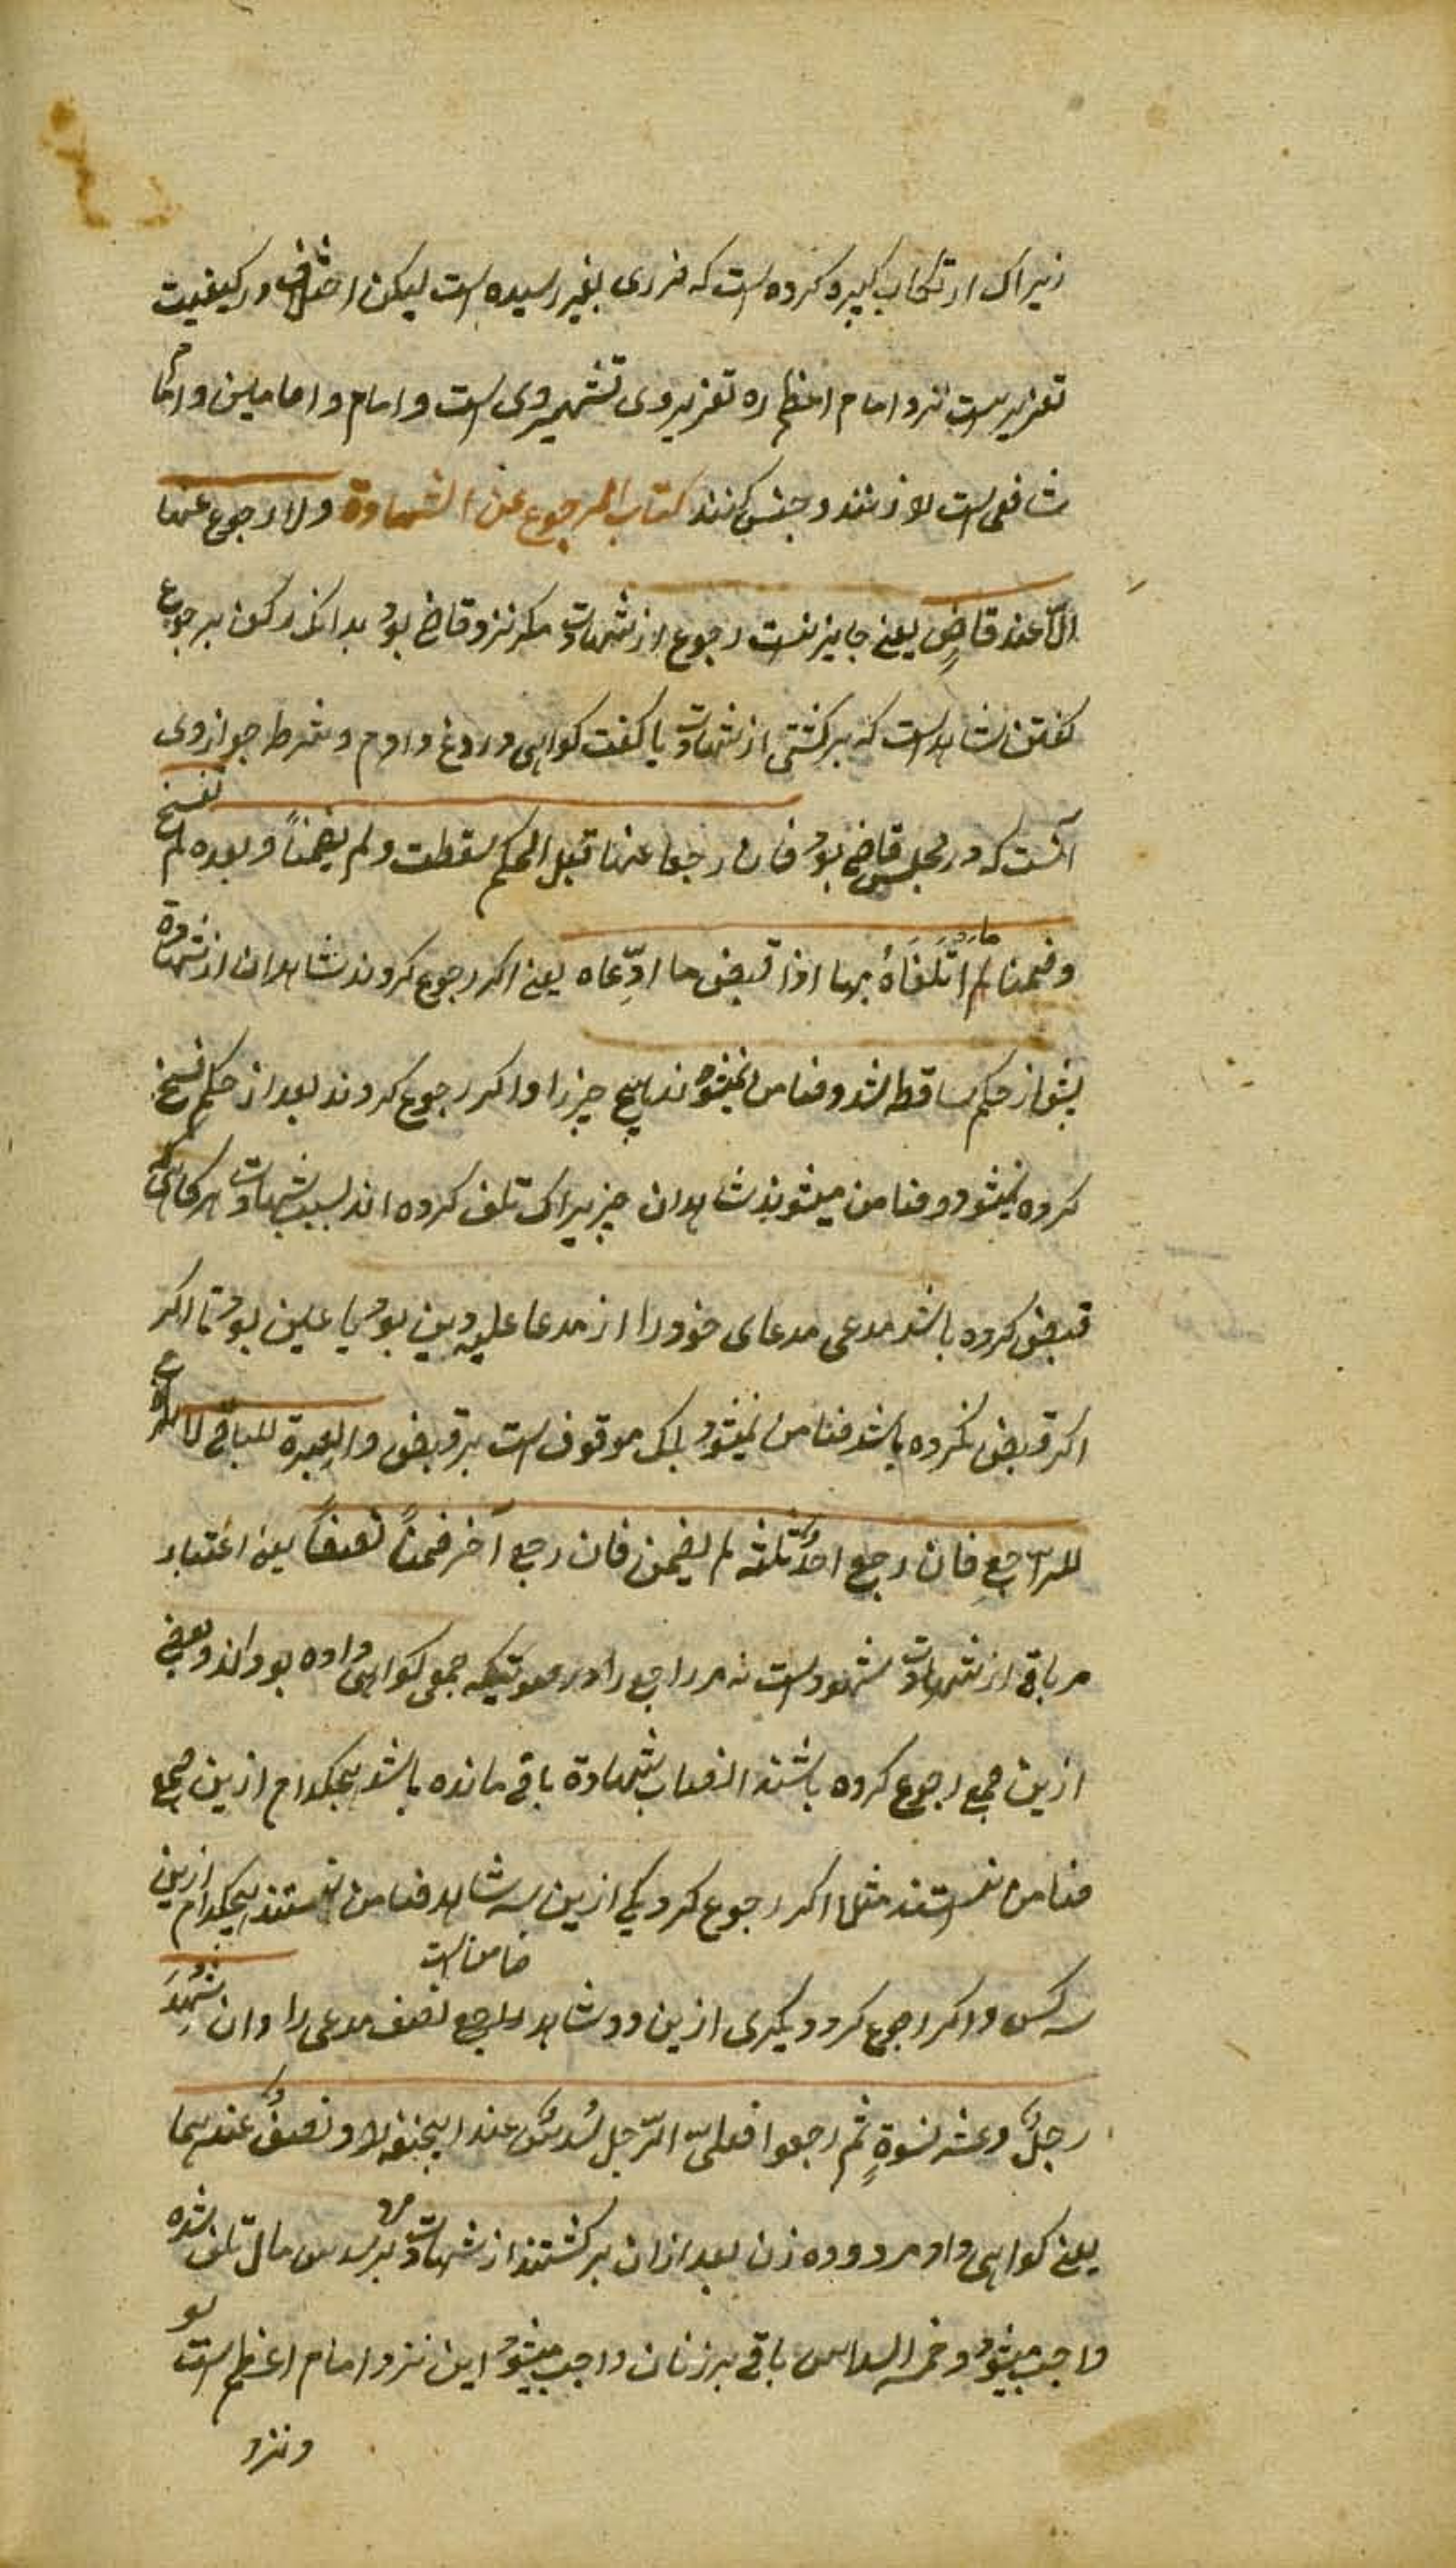 زیراک ارتکاب کبیره کرده است که ضرری بغیر رسیده است لیکن اختلاف در کیفیت
تعزیر است نزد امام اعظم ره تعزیر وی تشهیر وی است و امام و امامین و امام
شافعی است لازنند و حبس کنند کتاب الرجوع عن الشهادة ولا رجوع عنها
الّا عند قاضٍ یعنے جایز نیست رجوع از شهادت مکر نزد قاضی بود بدانک رکن رجوع
کفتن شاهد است که برکشتم از شهادت یا کفت کواهی دروغ دادم و شرط جواز وی
آنست که در مجلس قاضی بود فان رجعا عنها قبل الحکم سقطت ولم یضمناً و بعده لم تفسخ
وضمنا ما اتلفاهُ بها اذا قبض ما ادّعاه یعنے اکر رجوع کردند شاهدان از شهادة
پیش از حکم ساقط شد و ضامن نمیشوند هیچ چیز را و اکر رجوع کردند بعد از حکم فسخ
کرده نمیشود و ضامن میشوند شاهدان چیزیراک تلف کرده اند بسبب شهادت هرکاهی که
قبض کرده باشد مدعی مدعای خود را از مدعا علیه دین بود یا عین بود تا اکر
اکر قبض نکرده باشد ضامن نمیشود بلک موقوف است بر قبض والعبرة للباقی لا للراجع
للراجعِ فان رجع احدُ ثلثه لم یضمن فان رجع آخر ضمناً نصفاً یعنے اعتبار
مر باقی از شهادت شهود است نه مر راجع را در صورتیکه جمعی کواهی داده بودند و بعضی
ازین جمع رجوع کرده باشند النصاب شهادة باقی مانده باشد هیچکدام ازین جمع
ضامن نیستند مثلا اکر رجوع کرد یکی ازین سه شاهد ضامن نیستند هیچکدام ازین
سه کس و اکر رجوع کرد دیکری ازین دو شاهد راجع ضامن است نصف مدعی را وان شَهِدَ
رجلٌ وعشر نسوةٍ ثم رجعوا فعلی الرّجل سُدسٌ عند ابیحنیفه لا و نصفٌ عندهما
یعنے کواهی داد مرد و ده زن بعد ازان برکشتند از شهادت بر مرد سدس مال تلف شده
واجب میشود و خمسه اسداس باقی بر زنان واجب میشود این نزد امام اعظم است
و نزد